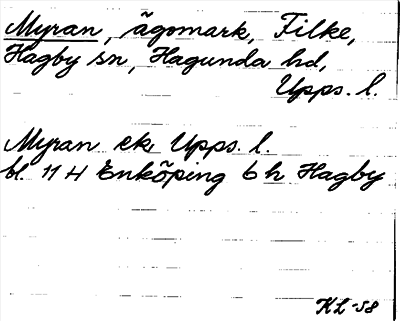 Myran, ägomark, Filke,
Hagby sn, Hagunda hd,
Upps. l.
Myran ek Upps. l.
bl. 11 H Enköping 6 h Hagby
KL-58